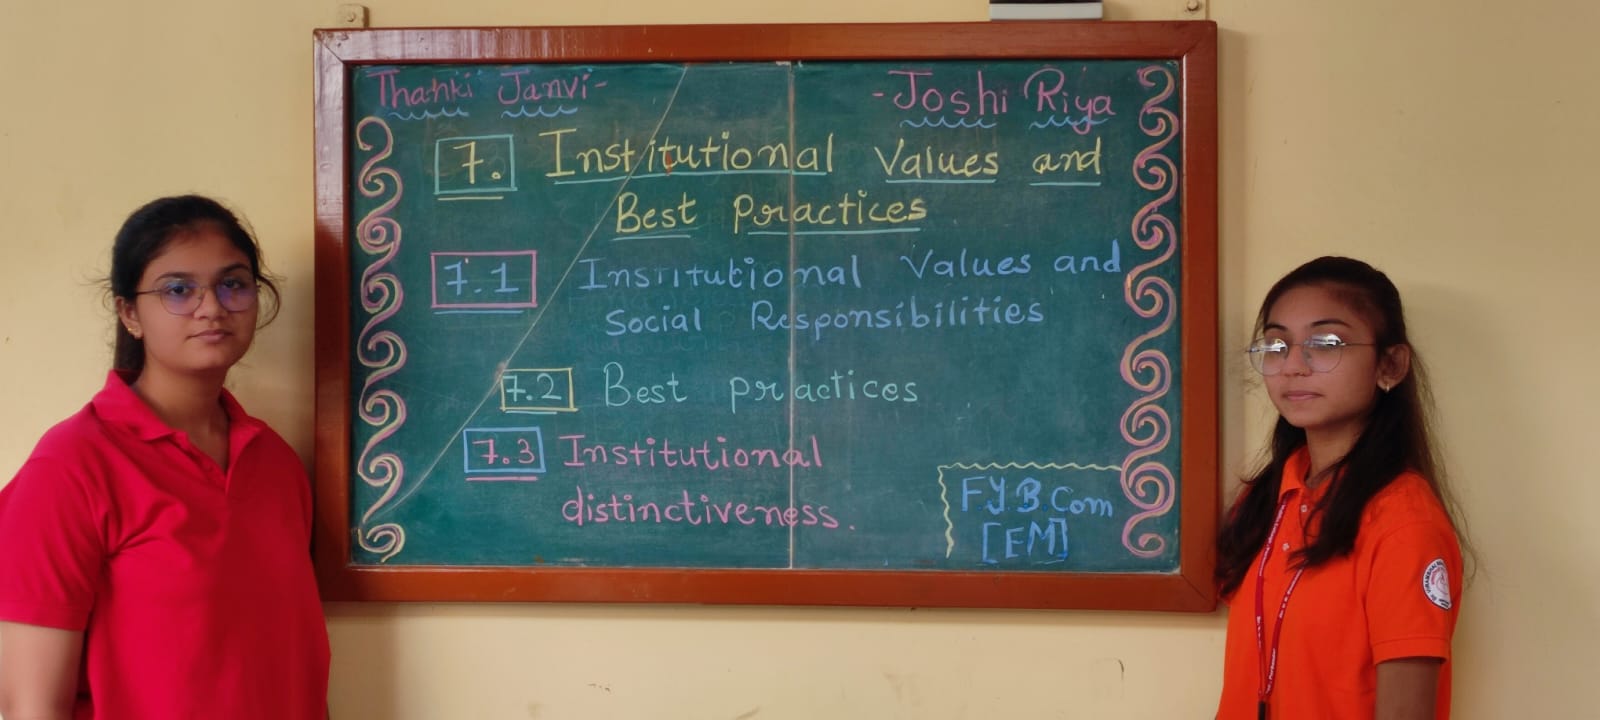 Thanki Janvi-
- Joshi Riya
7. Institutional Values and
Best Practices
7.1 Institutional Values and
Social Responsibilities
7.2 Best practices
7.3 Institutional
distinctiveness.
F.Y.B.Com
[EM]